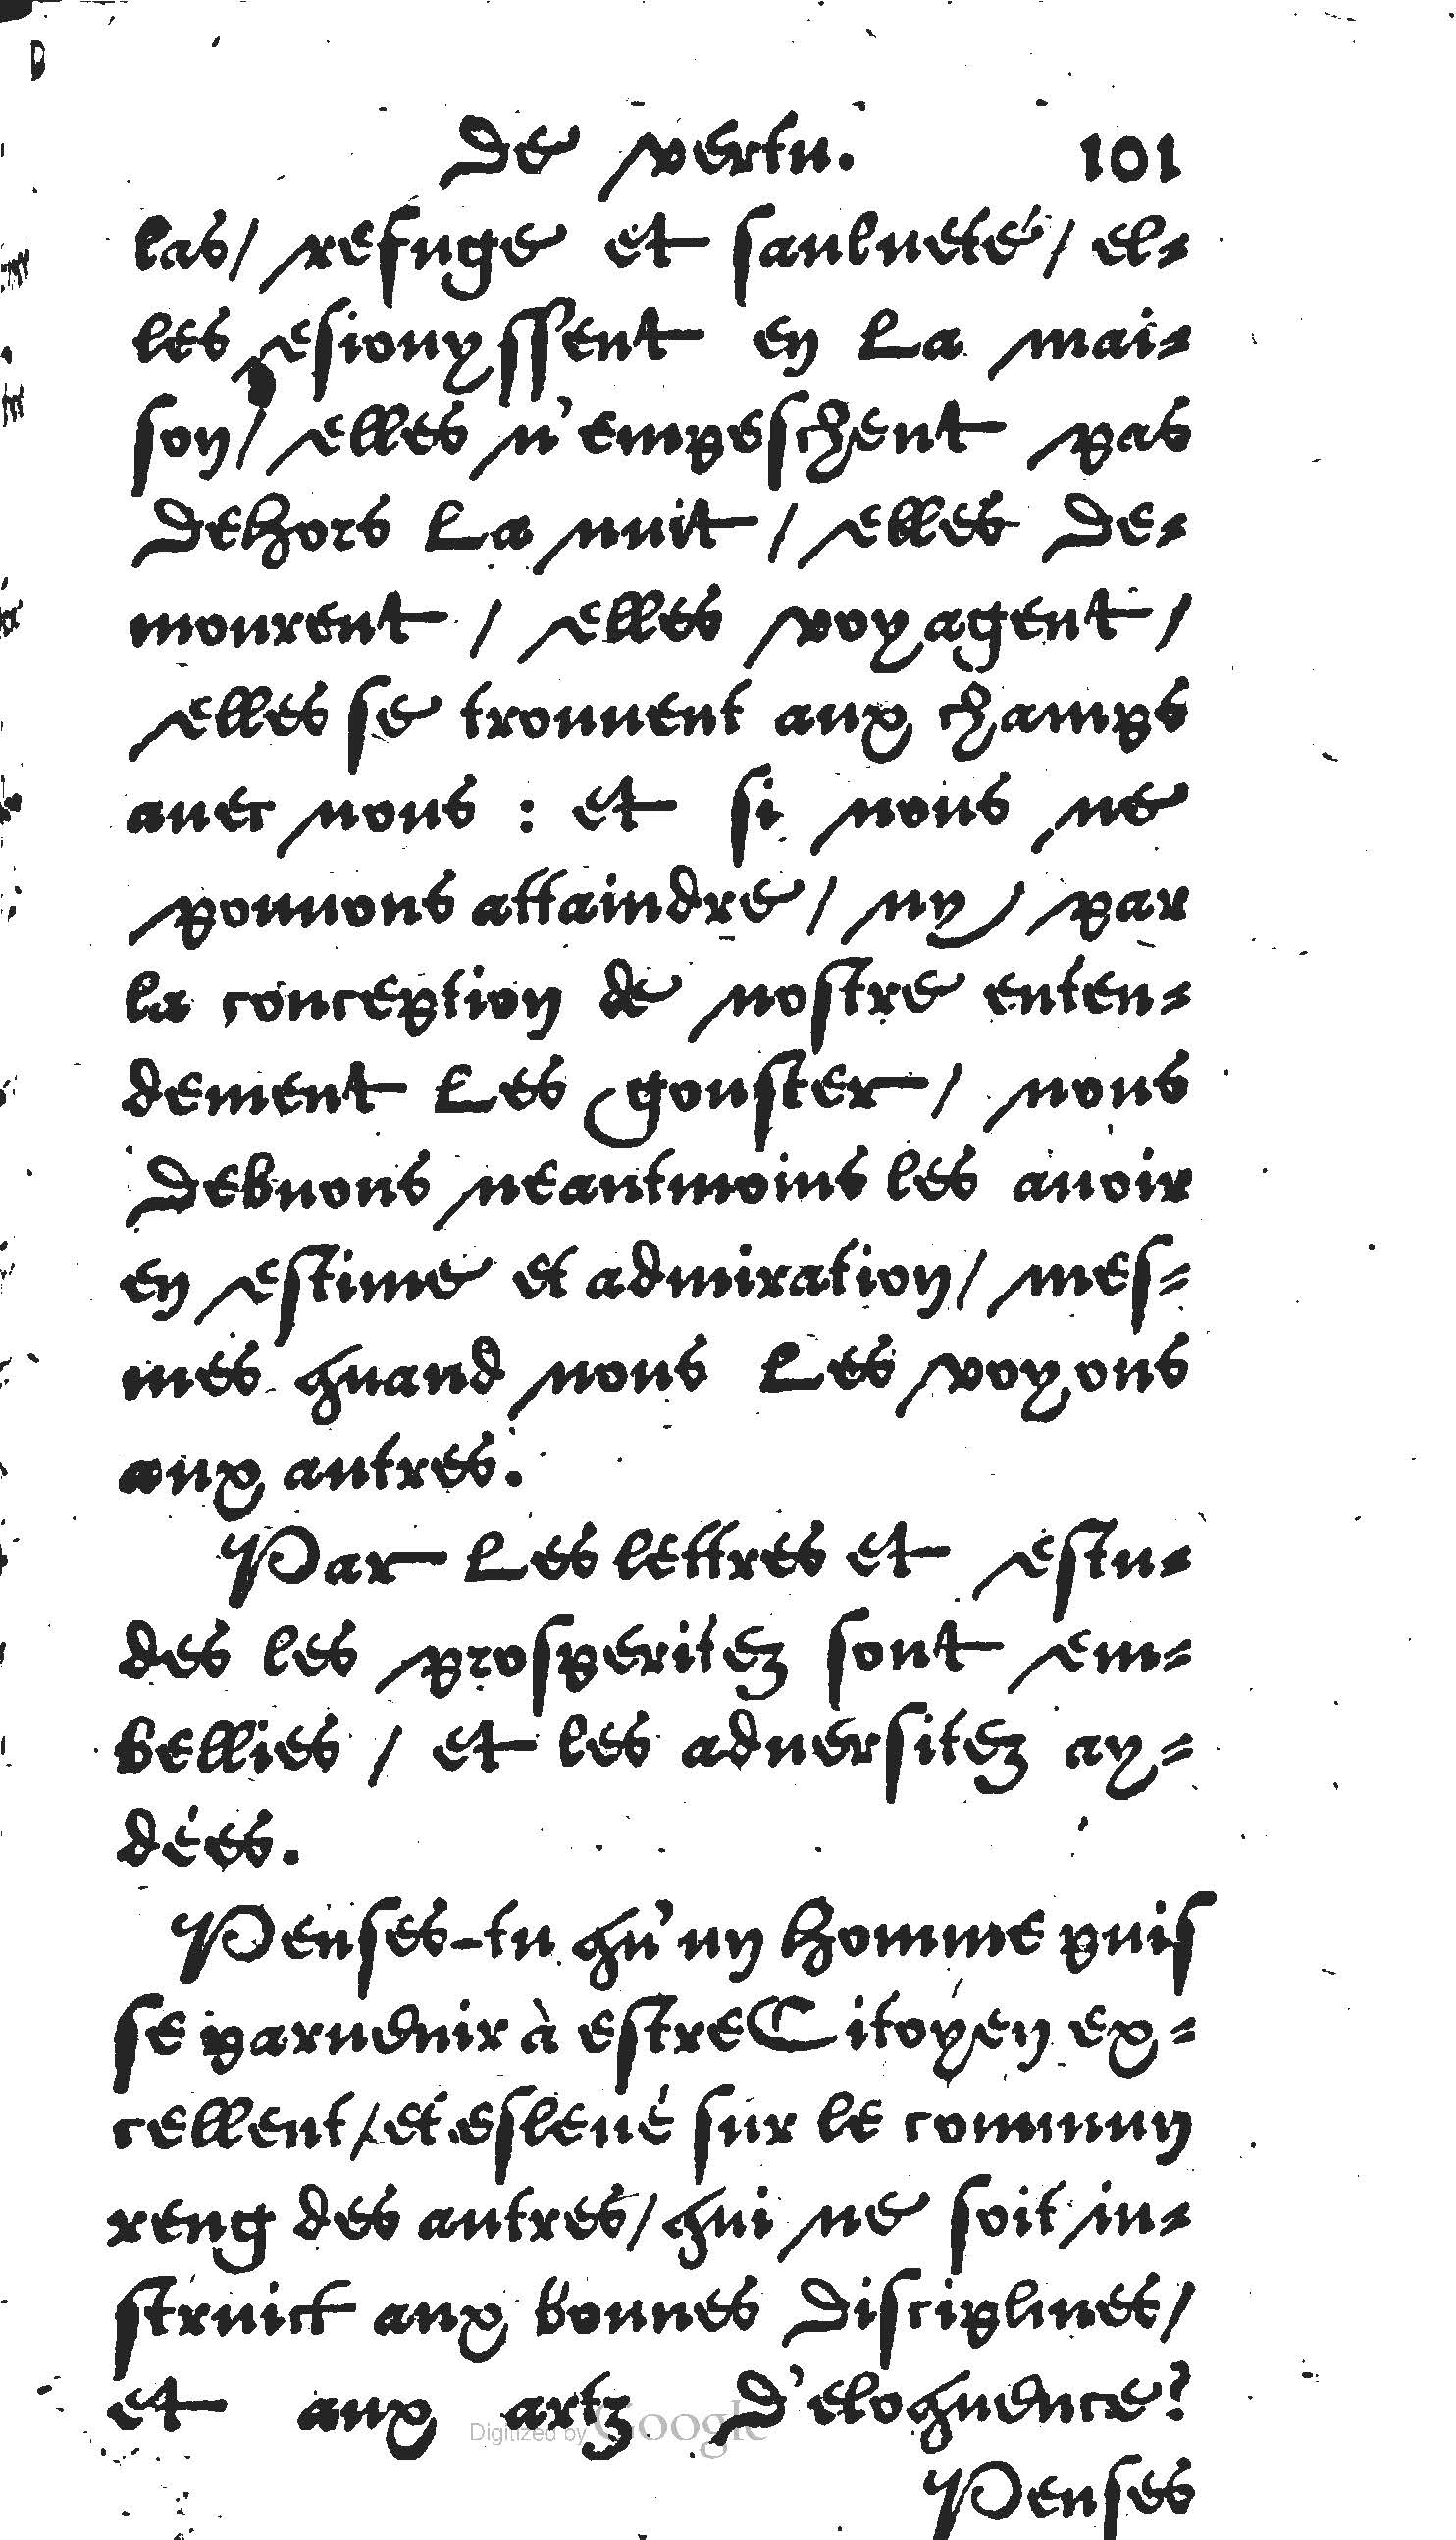 De vertu. 101
las/ refuge et saulueté/ el-
les esiouyssent en La mai-
son/ elles n'empeschent pas
dehors La nuit / elles de-
mourent / elles voyagent /
elles se trouuent aux champs
auec nous : et si nous ne
pouuons attaindre / ny par
la conception de nostre enten-
dement Les gouster / nous
debuons neantmoins les auoir
en estime et admiration / mes-
mes quand nous Les voyons
aux autres.
Par Les lettres et estu-
des les prosperitez sont em-
bellies / et les aduersitez ay-
dées.
Penses-tu qu'un homme puis
se paruenir à estre Citoyen ex-
cellent / et esleué sur le commun
reng des autres / qui ne soit in-
struict aux bonnes disciplines /
et aux artz d'eloquence?
Digitized by Google
Penses